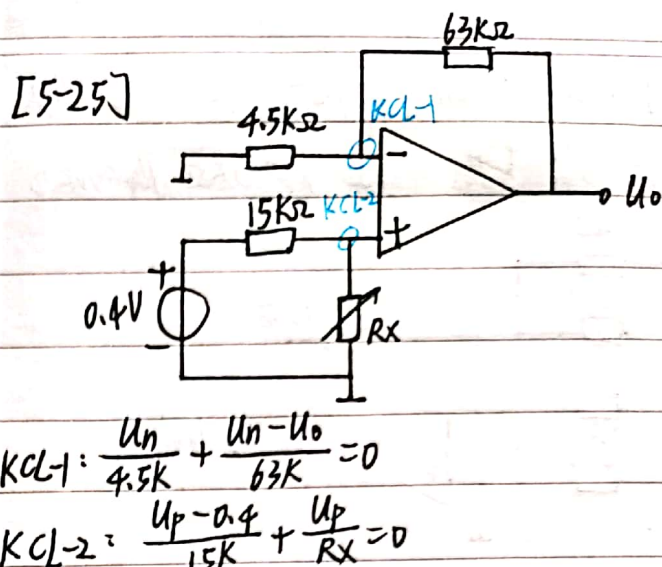 63KΩ
[5-25]
4.5KΩ
KCL-1
-
15KΩ
KCL-2
+
Uo
+
0.4V
-
RX
KCL-1: Un/4.5K + (Un-Uo)/63K = 0
KCL-2: (Up-0.4)/15K + Up/RX = 0